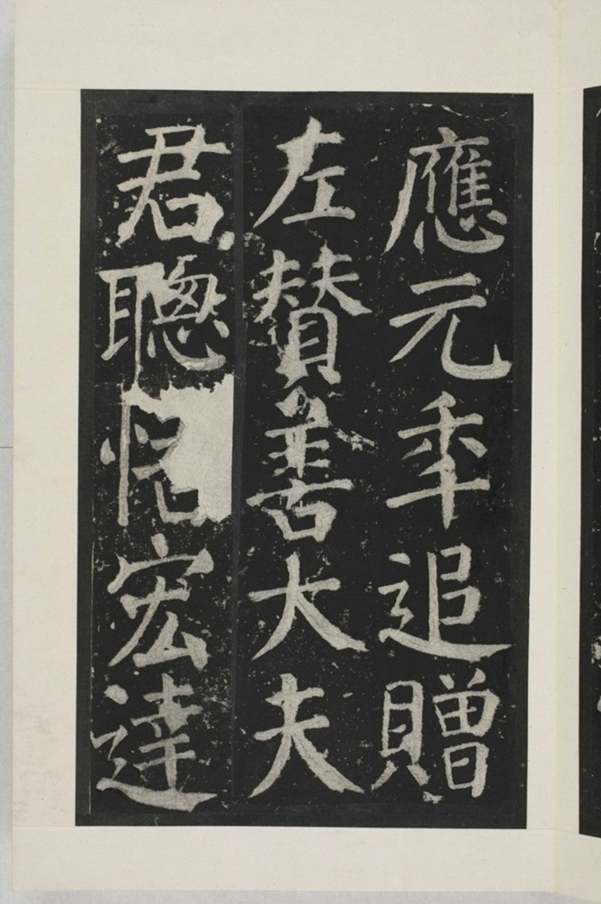 應元秊追贈
左賛善大夫
君聰宏達